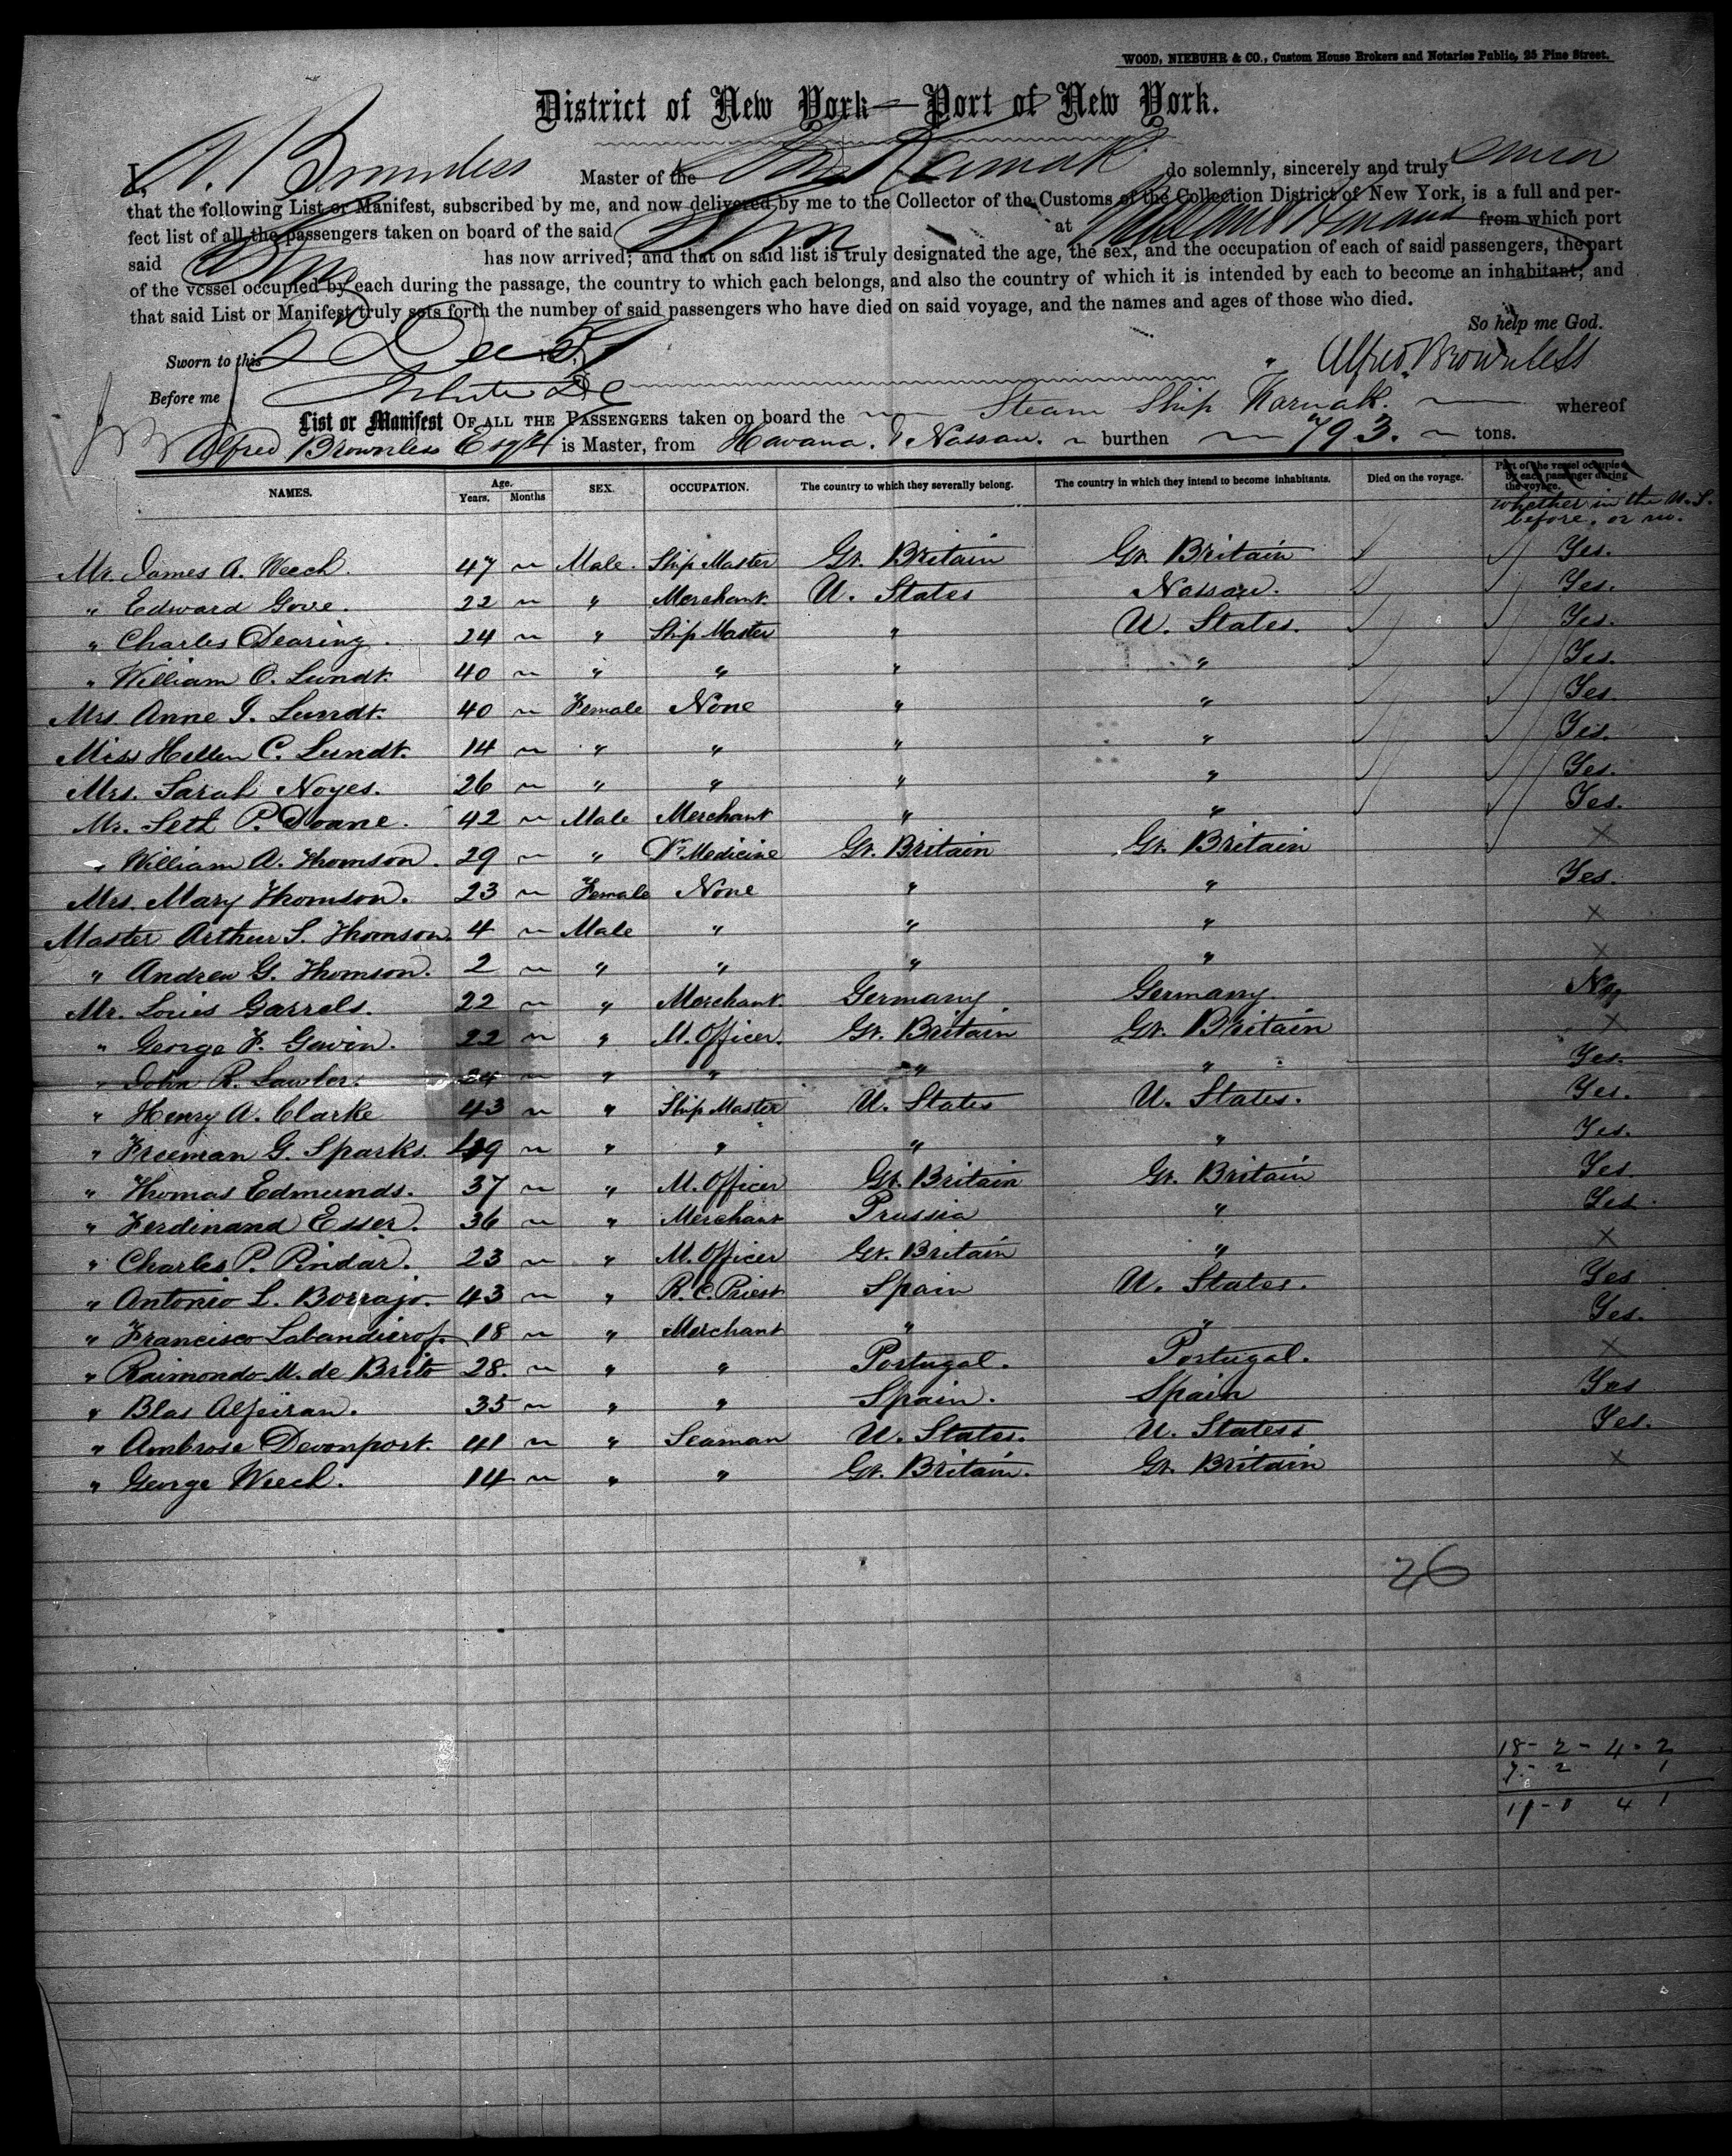 WOOD, NIEBUHR & CO., Custom House Brokers and Notaries Public, 25 Pine Street.
District of New York—Port of New York.
I, A. Brownless Master of the Karnak do solemnly, sincerely and truly swear
that the following List or Manifest, subscribed by me, and now delivered by me to the Collector of the Customs of the Collection District of New York, is a full and per-
fect list of all the passengers taken on board of the said at from which port
said has now arrived; and that on said list is truly designated the age, the sex, and the occupation of each of said passengers, the part
of the vessel occupied by each during the passage, the country to which each belongs, and also the country of which it is intended by each to become an inhabitant; and
that said List or Manifest truly sets forth the number of said passengers who have died on said voyage, and the names and ages of those who died.
So help me God.
Sworn to this 2 Dec
Alfred Brownless
Before me
List or Manifest OF ALL THE PASSENGERS taken on board the Steam Ship Karnak. whereof
Alfred Brownless Esqr is Master, from Havana. & Nassau. burthen 793. tons.
NAMES. Age. Years. Months SEX. OCCUPATION. The country to which they severally belong. The country in which they intend to become inhabitants. Died on the voyage. Part of the vessel occupied by each passenger during the voyage.
whether in the U.S. before, or no.
Mr. James A. Weech. 47 ~ Male. Ship Master Gr. Britain Gr. Britain Yes.
" Edward Gove. 22 ~ " Merchant. U. States Nassau. Yes.
" Charles Dearing. 24 ~ " Ship Master " U. States. Yes.
" William O. Lundt. 40 ~ " " " " Yes.
Mrs. Anne J. Lundt. 40 ~ Female None " " Yes
Miss Hellen C. Lundt. 14 ~ " " " " Yes.
Mrs. Sarah Noyes. 26 ~ " " " " Yes.
Mr. Seth P. Doane. 42 ~ Male Merchant " " Yes.
" William A. Thomson. 29 ~ " Dr. Medicine Gr. Britain Gr. Britain X
Mrs. Mary Thomson. 23 ~ Female None " " Yes.
Master Arthur S. Thomson. 4 ~ Male " " " X
" Andrew G. Thomson. 2 ~ " " " " X
Mr. Louis Garrels. 22 ~ " Merchant. Germany Germany. No
" George F. Gavin. 22 ~ " M. Officer. Gr. Britain Gr. Britain X
" John R. Lawler. 24 ~ " " " " Yes.
" Henry A. Clarke 43 ~ " Ship Master U. States U. States. Yes.
" Freeman G. Sparks. 49 ~ " " " " Yes.
" Thomas Edmunds. 37 ~ " M. Officer Gr. Britain Gr. Britain Yes
" Ferdinand Esser. 36 ~ " Merchant Prussia " Yes
" Charles P. Pindar. 23 ~ " M. Officer Gr. Britain " X
" Antonio L. Borrajo. 43 ~ " R. C. Priest Spain U. States. Yes
" Francisco 18 ~ " Merchant " " Yes.
" Raimondo M. de Brito 28. ~ " " Portugal. Portugal. X
" Blas Alfeiran. 35 ~ " " Spain. Spain Yes
" Ambrose Devonport. 41 ~ " Seaman U. States. U. States Yes.
" George Weech. 14 ~ " " Gr. Britain. Gr. Britain X
26
18 - 2 - 4 - 2
7 - 2 1
11 - 0 4 1